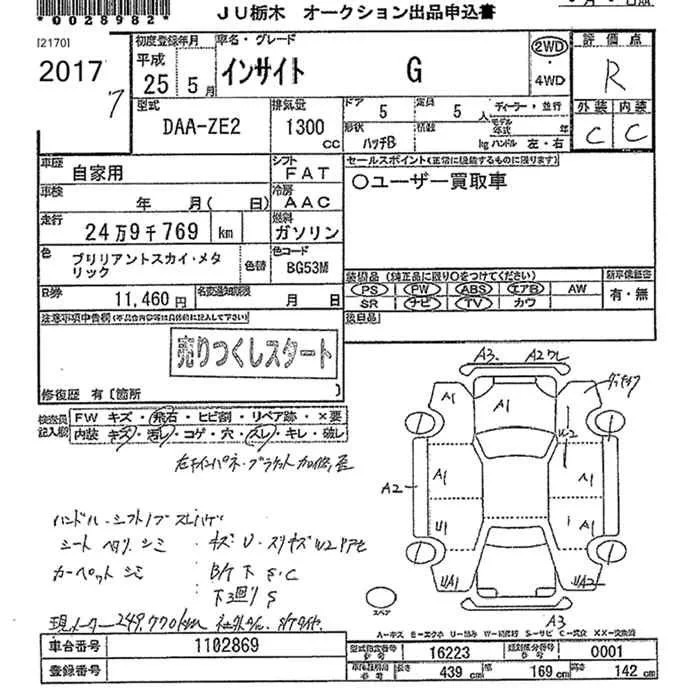 *0028982*
JU栃木 オークション出品申込書
[2170]
2017
7
初度登録年月
平成
25 年 5 月
車名・グレード
インサイト G
2WD
・
4WD
評価点
R
外装 内装
C C
型式
DAA-ZE2
排気量
1300
CC
ドア 5
定員 5 人
ディーラー・並行
形状 ハッチB
積載 kg
モデル年式 年
ハンドル 左・右
車歴 自家用
シフト FAT
セールスポイント(正常に機能するものに限ります)
○ユーザー買取車
車検 年 月( 日)
冷房 AAC
走行 24万9千769 km
燃料 ガソリン
色 ブリリアントスカイ・メタリック
色替
色コード BG53M
R券 11,460円
名変通知期限 月 日
装備品 (純正品に限り○をつけてください)
新車保証書
PS PW ABS エアB AW
有・無
SR ナビ TV カワ
後日品
注意事項申告欄
売りつくしスタート
修復歴 有〔箇所 〕
検査員記入欄
FW キズ・飛石・ヒビ割・リペア跡・×要
内装 キズ・汚レ・コゲ・穴・スレ・キレ・破レ
ハンドル・シフトノブ スレ
シート ヘタリ シミ
カーペット シミ
B/T 下 S・C
下廻り S
現メーター 249,770km
A3 A2
A1 A1
A2 A1 A1
U1 A1
UA1 UA2
A3
スペア
A-キズ E-エクボ U-凹み W-補修跡 S-サビ C-腐食 XX-交換済
車台番号 1102869
登録番号
型式指定番号 16223
類別区分番号 0001
長さ 439 cm 幅 169 cm 高さ 142 cm